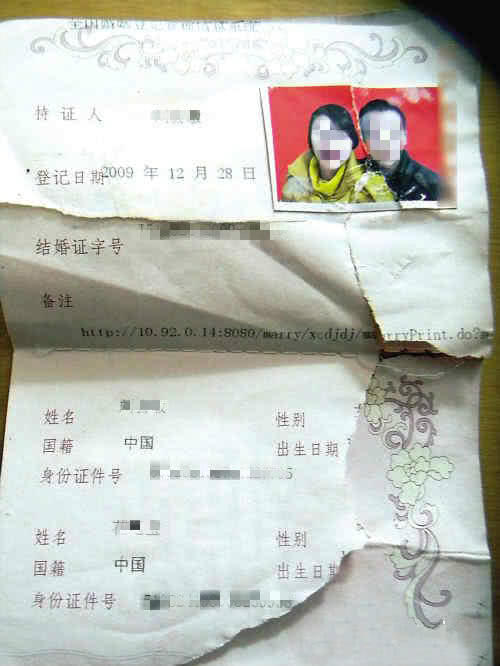 持证人
登记日期 2009 年 12 月 28 日
结婚证字号
备注
http://10.92.0.14:8080/marry/xcdjdj/marryPrint.do?
姓名 性别
国籍 中国 出生日期
身份证件号
姓名 性别
国籍 中国 出生日期
身份证件号